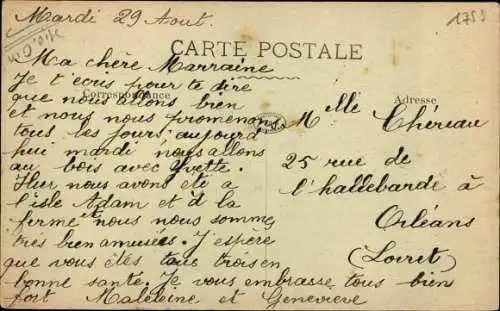 Mardi 29 Aout.
1759
CARTE POSTALE
Correspondance
Adresse
Ma chère Marraine
Je t'écris pour te dire
que nous allons bien
et nous nous promenons
tous les jours aujourd
hui mardi nous allons
au bois avec Yvette.
Hier nous avons été a
l'isle Adam et à la
ferme et nous nous sommes
très bien amusées. J'espère
que vous êtes tous trois en
bonne santé. Je vous embrasse tous bien
fort Madeleine et Geneviève
Mlle Chereau
25 rue de
l'hallebarde à
Orléans
(Loiret)